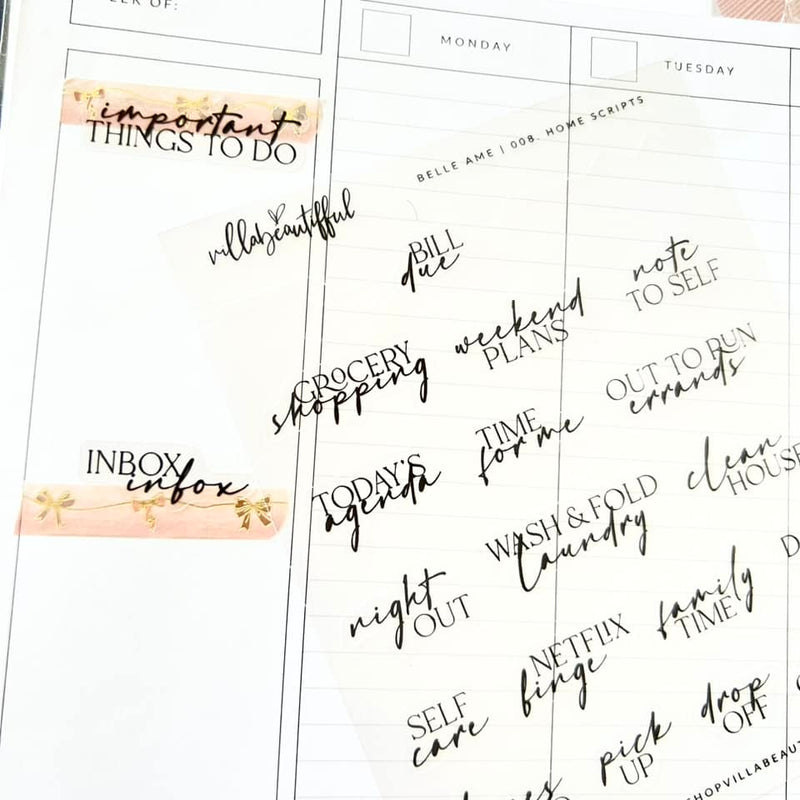 EEK OF:
MONDAY
TUESDAY
important
THINGS TO DO
BELLE AME | 008. HOME SCRIPTS
villabeautifful
BILL
due
note
TO SELF
weekend
PLANS
GROCERY
shopping
OUT TO RUN
errands
TIME
for me
INBOX
infox
TODAY'S
agenda
clean
HOUSE
WASH & FOLD
laundry
night
OUT
family
TIME
NETFLIX
binge
SELF
care
drop
OFF
pick
UP
SHOPVILLABEAUT